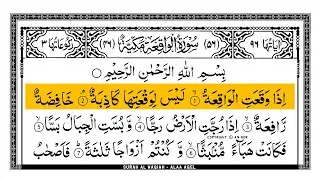 اٰيَاتُهَا ٩٦ (٥٦) سُوْرَةُ الْوَاقِعَةِ مَكِّيَّةٌ (٤٦) رُكُوْعَاتُهَا ٣
بِسْمِ اللّٰهِ الرَّحْمٰنِ الرَّحِيْمِ
اِذَا وَقَعَتِ الْوَاقِعَةُ ۙ﴿1﴾ لَيْسَ لِوَقْعَتِهَا كَاذِبَةٌ ۘ﴿2﴾ خَافِضَةٌ
رَّافِعَةٌ ۙ﴿3﴾ اِذَا رُجَّتِ الْاَرْضُ رَجًّا ۙ﴿4﴾ وَّبُسَّتِ الْجِبَالُ بَسًّا ۙ﴿5﴾
فَكَانَتْ هَبَآءً مُّنْۢبَثًّا ۙ﴿6﴾ وَّكُنْتُمْ اَزْوَاجًا ثَلٰثَةً ؕ﴿7﴾ فَاَصْحٰبُ
SURAH AL WAQIAH - ALAA AQEL